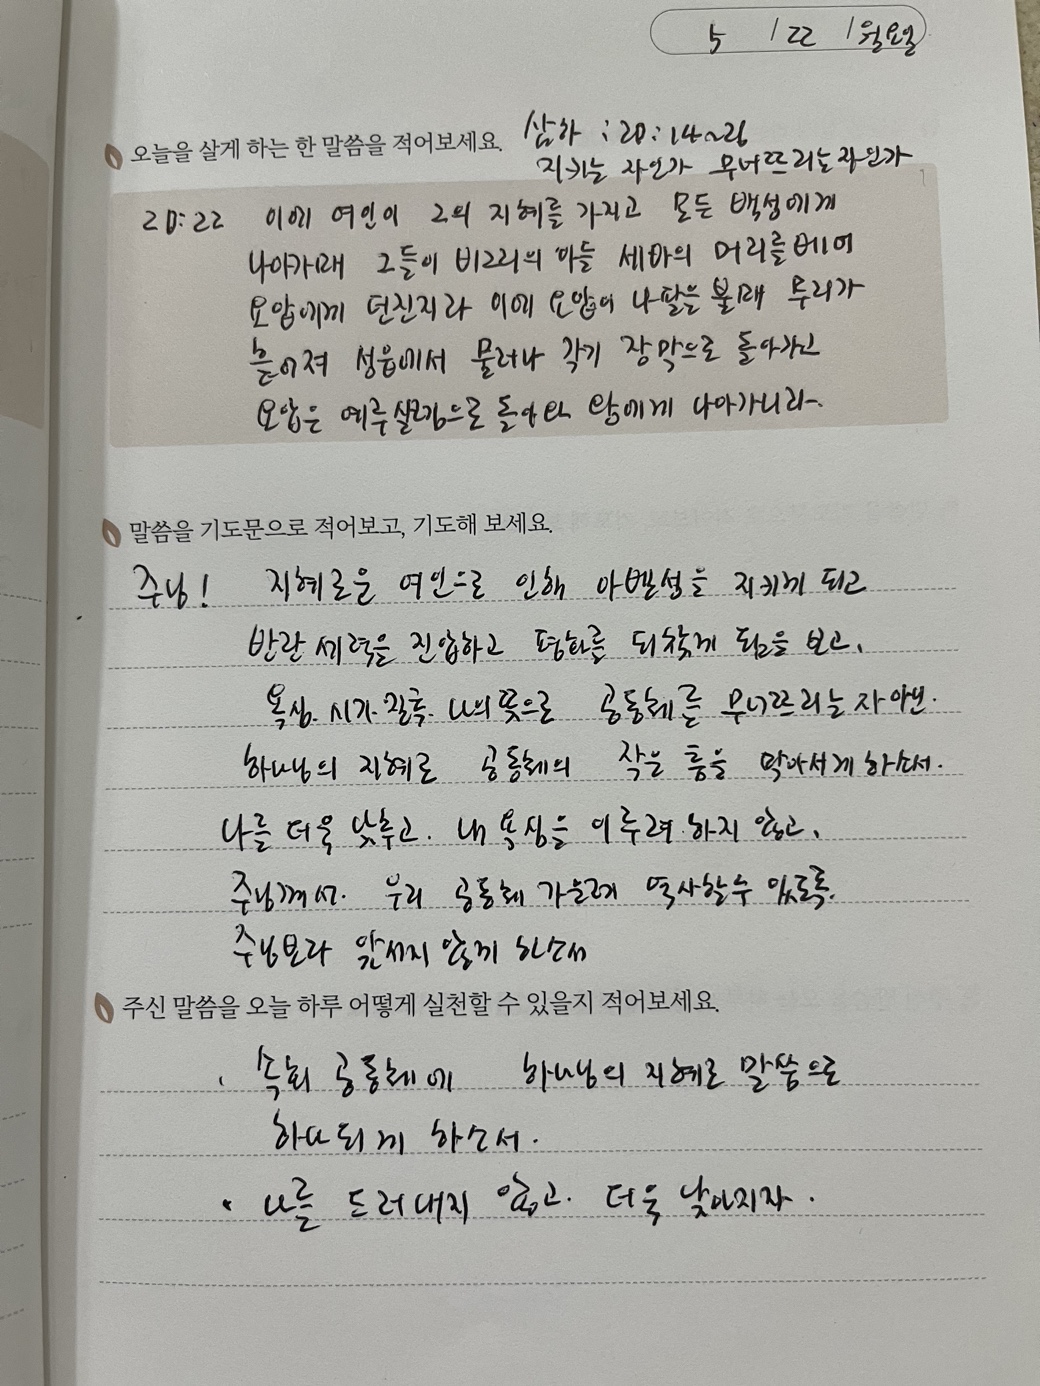 5 / 22 / 월요일
오늘을 살게 하는 한 말씀을 적어보세요. 삼하 : 20:14~26
지키는 자인가 무너뜨리는 자인가
20:22 이에 여인이 그의 지혜를 가지고 모든 백성에게
나아가매 그들이 비그리의 아들 세바의 머리를 베어
요압에게 던진지라 이에 요압이 나팔을 불매 무리가
흩어져 성읍에서 물러나 각기 장막으로 돌아가고
요압은 예루살렘으로 돌아와 왕에게 나아가니라.
말씀을 기도문으로 적어보고, 기도해 보세요.
주님! 지혜로운 여인으로 인해 아벨성을 지키게 되고
반란 세력을 진압하고 평화를 되찾게 됨을 보고,
욕심. 시기. 질투. 나의 뜻으로 공동체를 무너뜨리는 자 아닌.
하나님의 지혜로 공동체의 작은 틈을 막아서게 하소서.
나를 더욱 낮추고. 내 욕심을 이루려 하지 않고,
주님께서. 우리 공동체 가운데 역사할 수 있도록.
주님보다 앞서지 않게 하소서
주신 말씀을 오늘 하루 어떻게 실천할 수 있을지 적어보세요.
. 속회 공동체에 하나님의 지혜로 말씀으로
하나되게 하소서.
• 나를 드러내지 않고. 더욱 낮아지자.